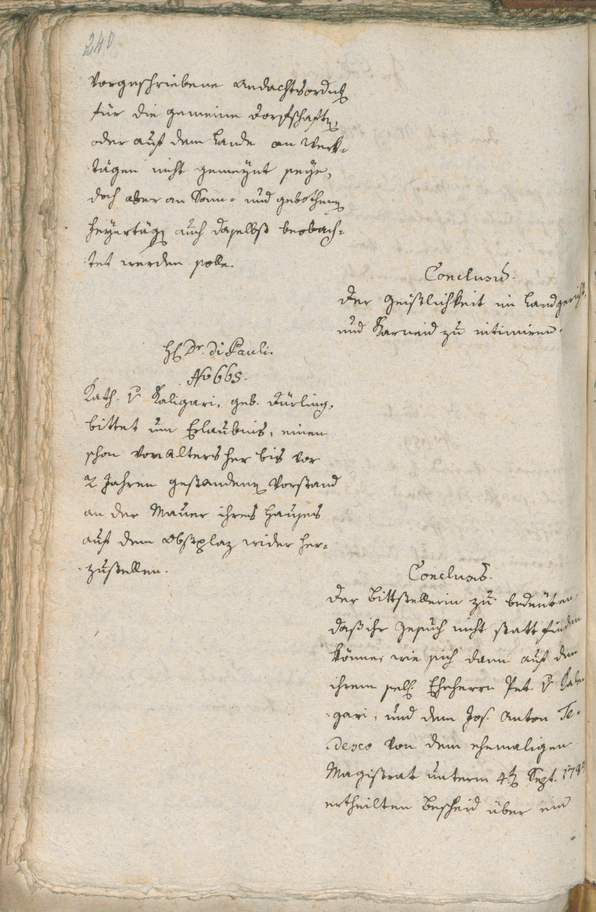 240
vorgeschriebene Andachtsordng
für die gemeine Dorfschaften,
oder auf dem Lande an Werk-
tägen nicht gemeynt seye,
doch aber an Sonn- und gebothenen
Feyertägen auch daselbst beobach-
tet werden solle.
Conclusū.
Der Geistlichkeit im Landgericht,
und Karneid zu intimiren.
H. Dr. Di Pauli.
No 665.
Kath. v. Kaligari, geb. Dürling,
bittet um Erlaubnis, einen
schon von Alters her bis vor
2 Jahren gestandenen Vorstand
an der Mauer ihres Hauses
auf dem Obstplaz wider her-
zustellen.
Conclusū.
Der Bittstellerin zu bedeuten,
daß ihr Gesuch nicht statt finden
könne, wie sich dann auf den
ihrem sel. Eheherrn Pet. v. Kali-
gari, und dem Jos. Anton Te-
desco von dem ehemaligen
Magistrat unterm 4ten Sept.
ertheilten Bescheid über ein